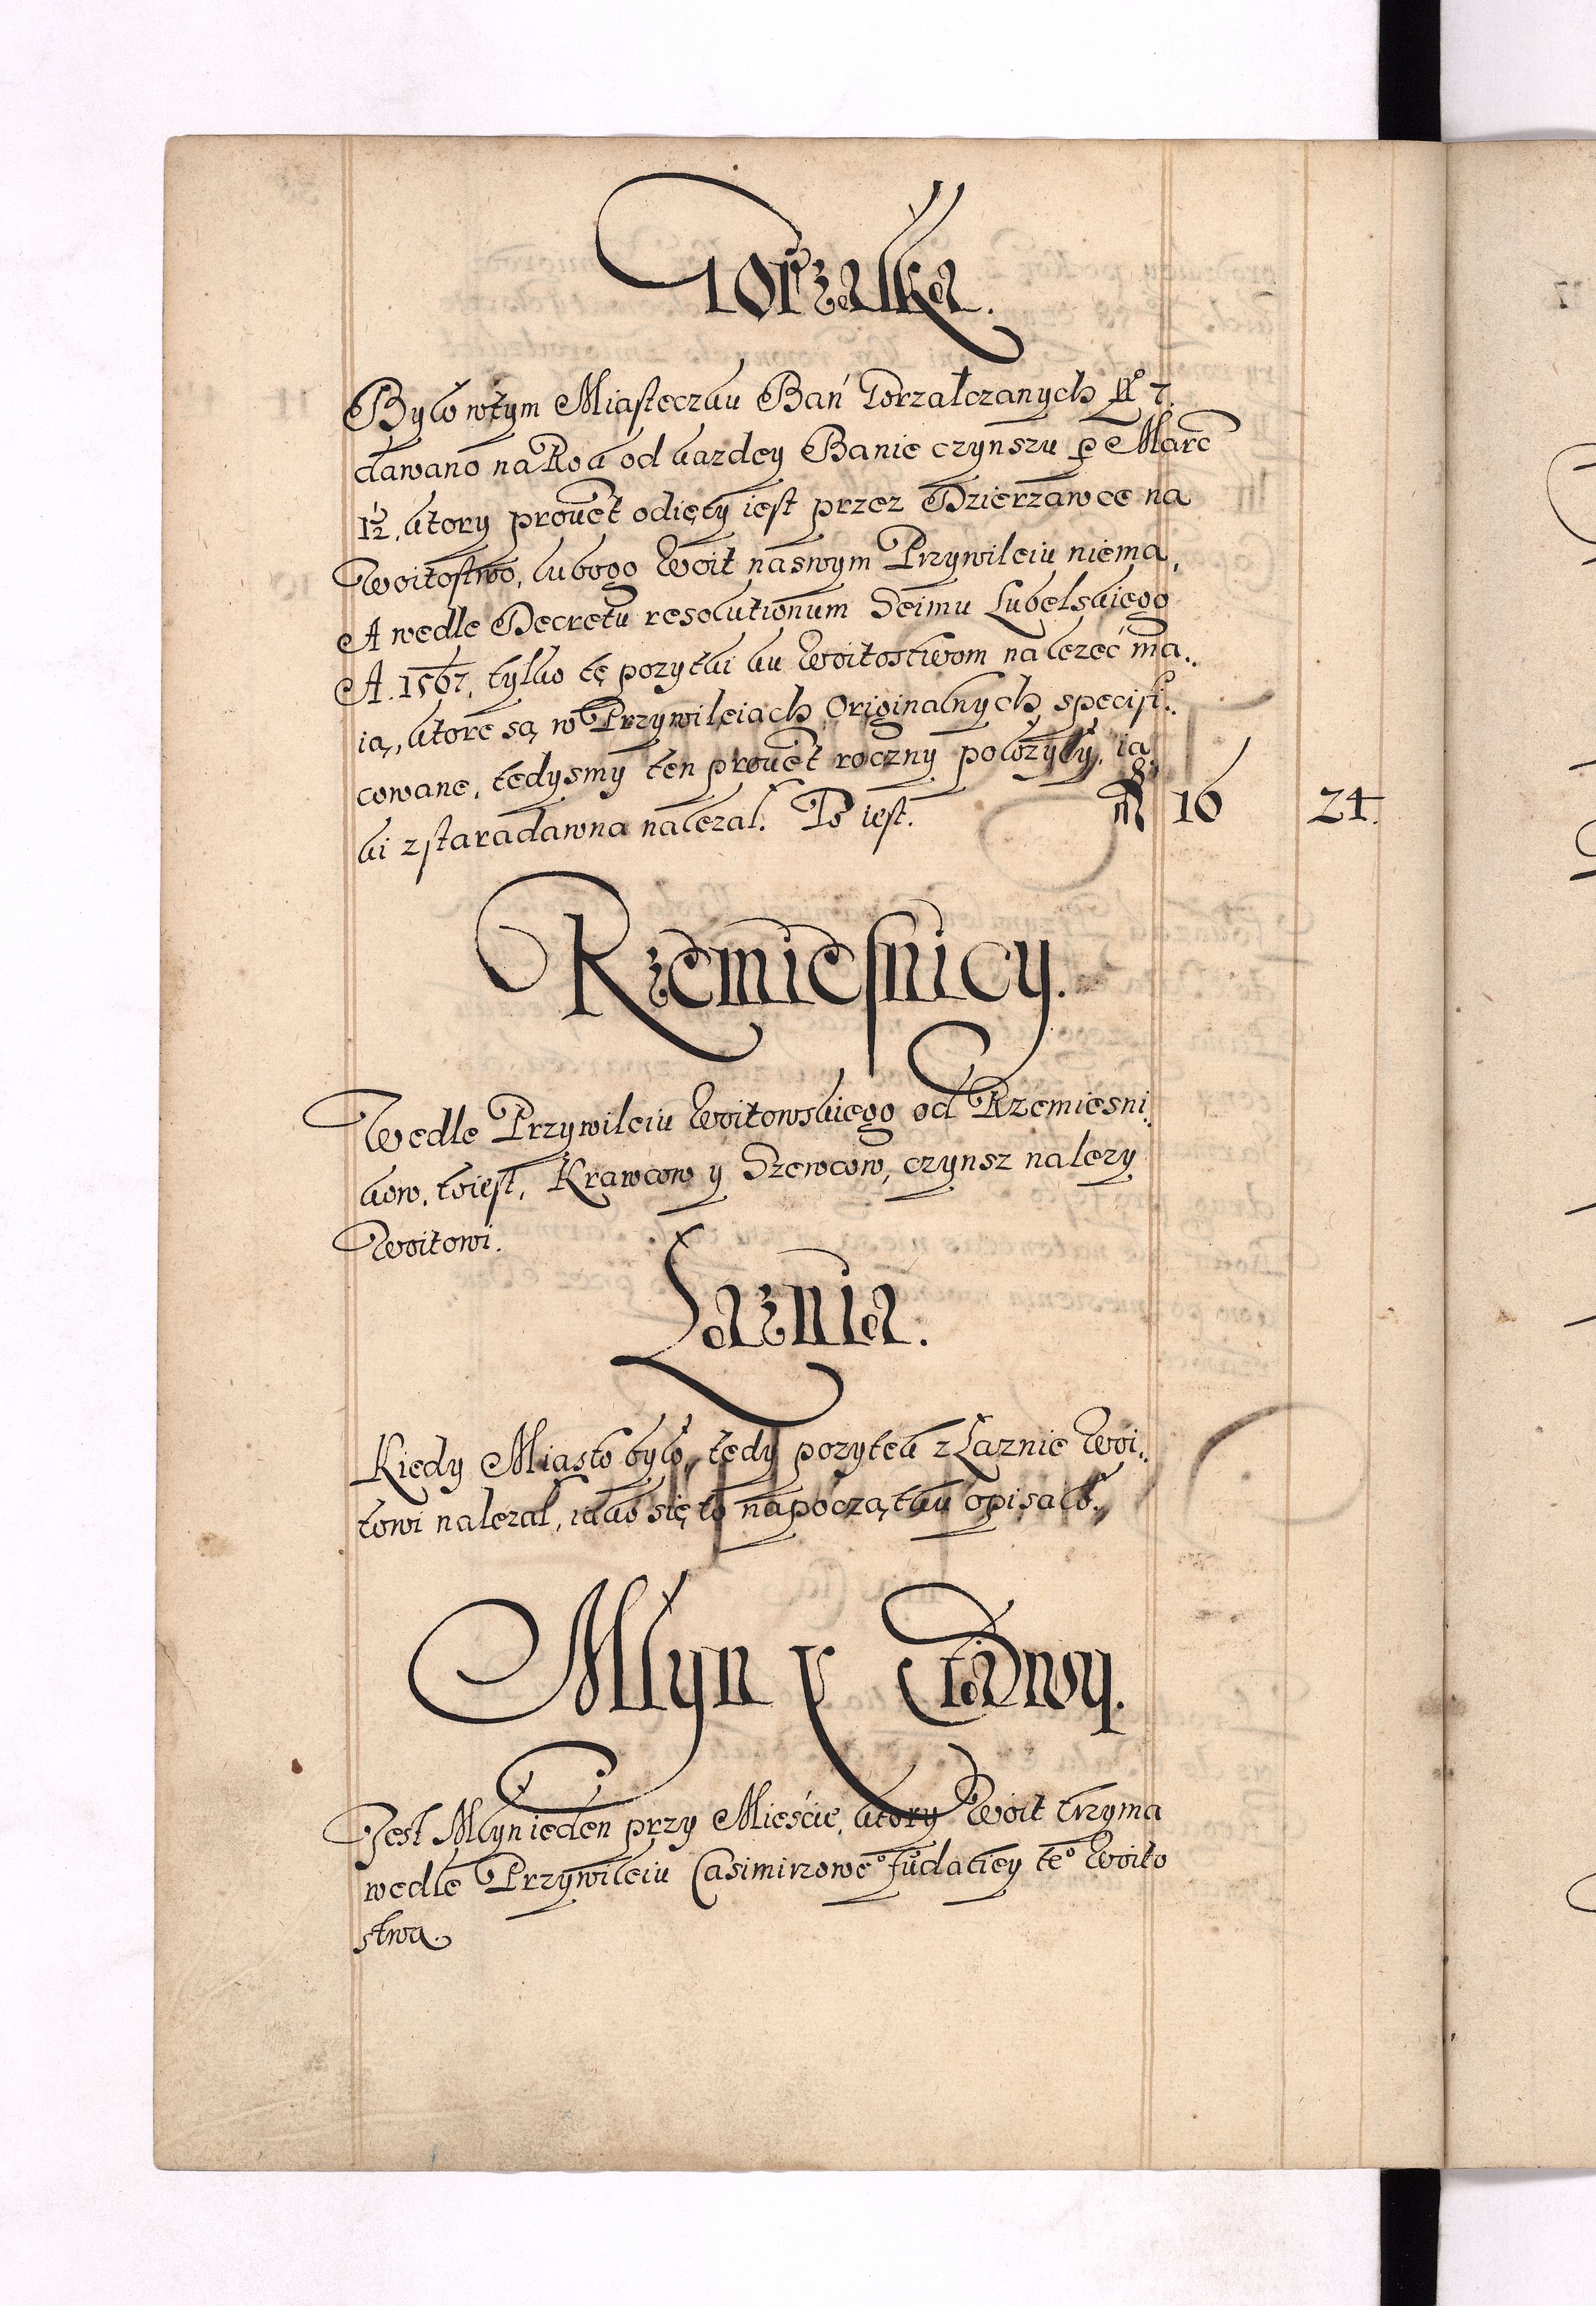 Gorzałka.
Było wtym Miasteczku Bań Gorzałczanych No 7.
dawano na Rok od kazdey Banie czynszu p Marc
1½, ktory prouēt odięty iest przez Dzierzawce na
Woitostwo, lubogo Woit naswym Przywileiu niema,
A wedle Decretu resolutionum Seimu Lubelskiego
A. 1567, tylko tę pozytki ku Woitostwom nalezeć ma..
ią, ktore są w Przywileiach Originalnych specifi..
cowane, tedysmy ten prouēt roczny polozyly, ia
ki zstaradawna nalezal. To iest. 16 24.
Rzemiesnicy.
Wedle Przywileiu Woitowskiego od Rzemiesni..
kow, toiest, Krawcow y Szewcow, czynsz nalezy
Woitowi.
Łaznia.
Kiedy Miasto było, tedy pozytek z Łaznie Woi..
towi nalezal, iako się to napoczątku opisało.
Młyn y Stawy.
Jest Młyn ieden przy Mieście, ktory Woit trzyma
wedle Przywileiu Casimirzoweº fūdatiey teº Woito
stwa.